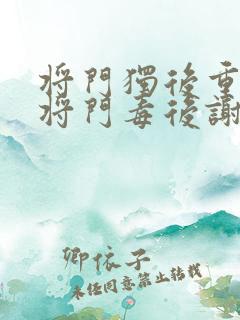 将門獨後重
将門毒後謝
卿依子
未经同意禁止转载